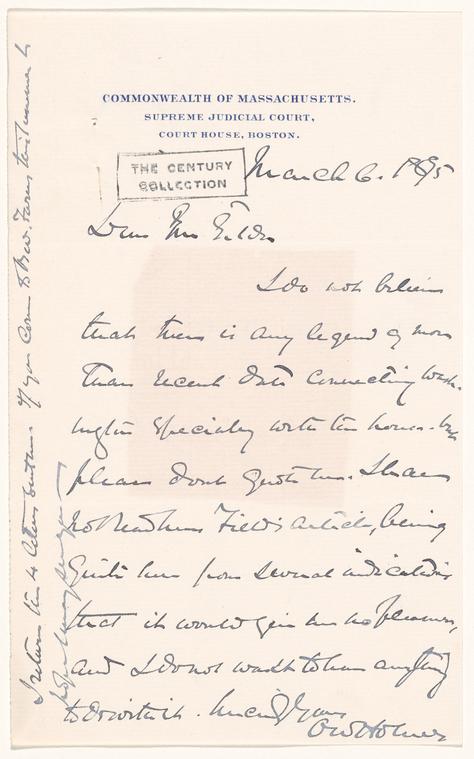 COMMONWEALTH OF MASSACHUSETTS.
SUPREME JUDICIAL COURT,
COURT HOUSE, BOSTON.
THE CENTURY
COLLECTION
March 6. 1895
Dear Mr Gilder
I do not believe
that there is any legend of more
than recent date connecting Wash-
ington specially with the house. but
please dont quote me. I have
not read Field's article, being
quite sure from several indications
that it would give me no pleasure,
and I do not want to have anything
to do with it. Yours
OW Holmes
I return the letters If you come to Bev. Farms this summer
I hope I may see you